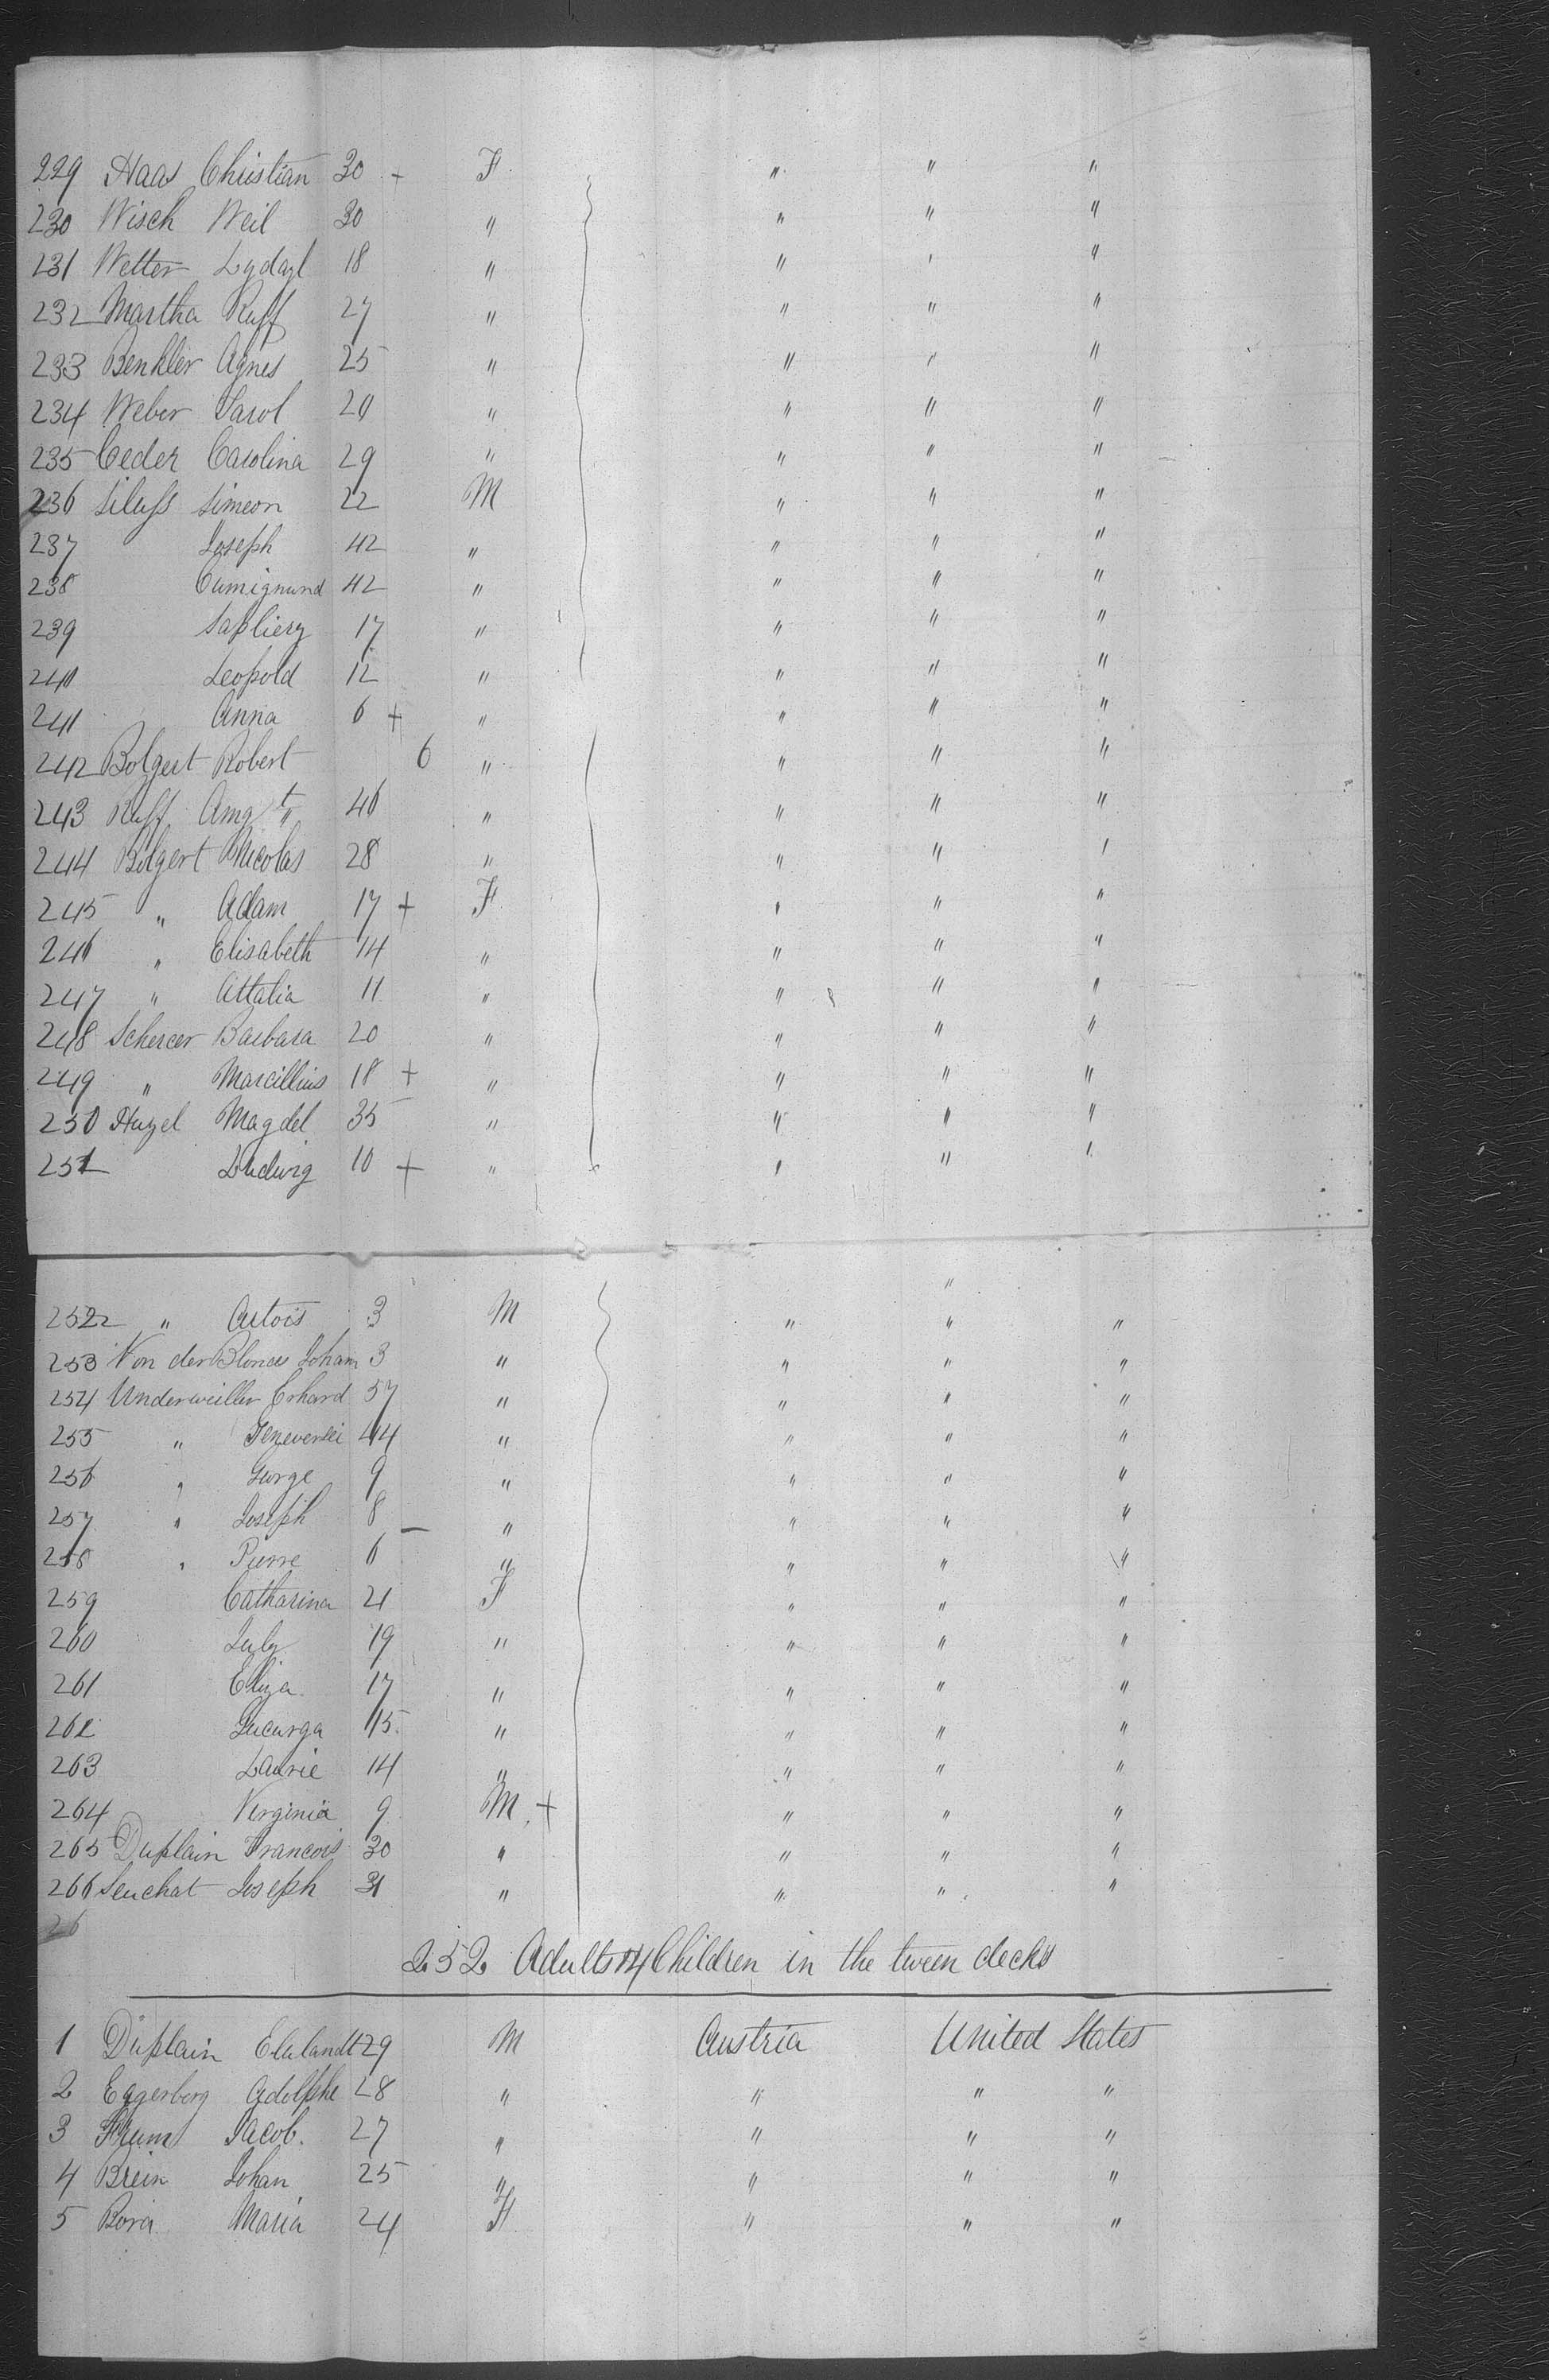 229 Haas Christian 30 + F " " "
230 Wisch Weil 30 " " " "
231 Wetter Lydazl 18 " " " "
232 Martha Ruff 27 " " " "
233 Benkler Agnes 25 " " " "
234 Weber Sarol 20 " " " "
235 Ceder Carolina 29 " " " "
236 Siluss Simeon 22 M " " "
237 Joseph 42 " " " "
238 Cumignund 42 " " " "
239 17 " " " "
240 Leopold 12 " " " "
241 Anna 6 + " " " "
242 Bolgert Robert 6 " " " "
243 Ruff 46 " " " "
244 Bolgert Nicolas 28 " " " "
245 " Adam 17 + F " " "
246 " Elisabeth 14 " " " "
247 " Attalia 11 " " " "
248 Schercer Barbara 20 " " " "
249 " Marcillius 18 + " " " "
250 Hugel Magdel 35 " " " "
251 Ludwig 10 + " " " "
252 " 3 M " " "
253 Von der Joham 3 " " " "
254 Underweiller Erhard 57 " " " "
255 " 44 " " " "
256 " Gurge 9 " " " "
257 " Joseph 8 – " " " "
258 " Pierre 6 " " " "
259 Catharina 21 F " " "
260 July 19 " " " "
261 Eliza 17 " " " "
262 Lucurga 15 " " " "
263 Laurie 14 " " " "
264 Virginia 9 M + " " "
265 Duplain Francois 30 " " " "
266 Senchat Joseph 31 " " " "
26
252 Adults 14 Children in the tween decks
1 Duplain 29 M Austria United States
2 Eggerberg Adolphe 28 " " " "
3 Jacob. 27 " " " "
4 Brein Johan 25 " " " "
5 Maria 24 F " " "